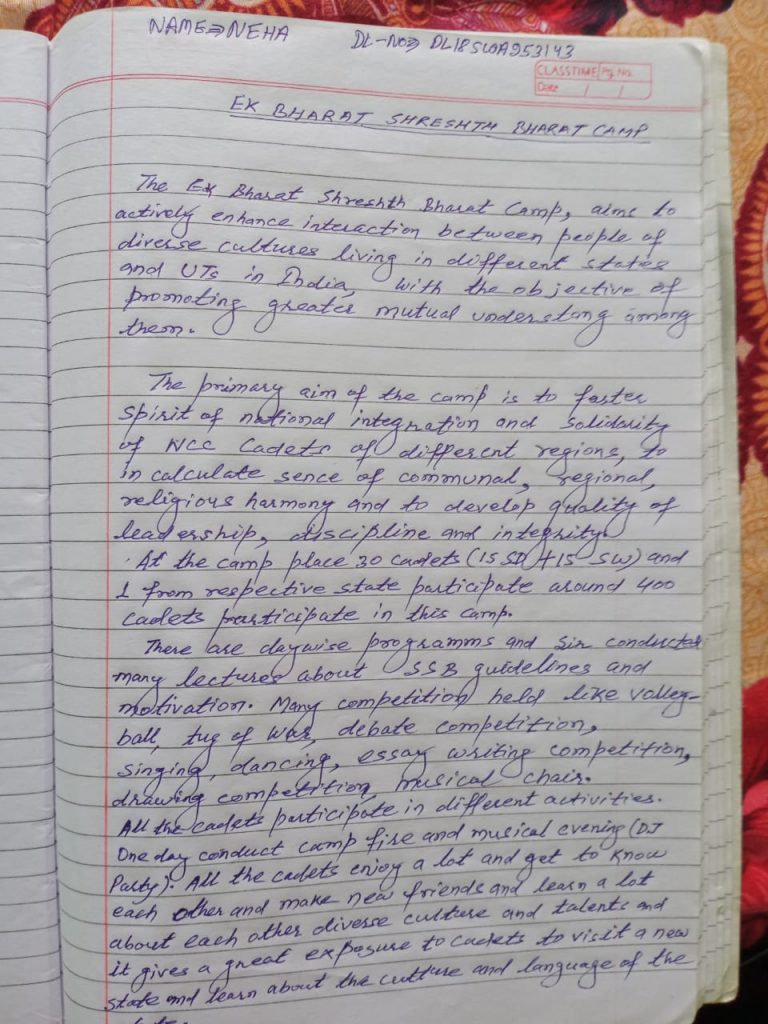 NAME⇒NEHA
DL-NO⇒ DL18SWA953143
CLASSTIME Pg. No.
Date / /
EK BHARAT SHRESHTH BHARAT CAMP
The Ek Bharat Shreshth Bharat Camp, aims to
actively enhance interaction between people of
diverse cultures living in different states
and UTs in India, with the objective of
promoting greater mutual understang among
them.
The primary aim of the camp is to foster
spirit of national integration and solidarity
of NCC Cadets of different regions, to
in calculate sence of communal, regional,
religious harmony and to develop quality of
leadership, discipline and integrity.
At the camp place 30 cadets (15 SD +15 SW) and
1 from respective state participate around 400
cadets participate in this camp.
There are daywise programms and Sir conducted
many lectures about SSB guidelines and
motivation. Many competition held like volley-
ball, tug of war, debate competition,
singing, dancing, essay writing competition,
drawing competition, musical chair.
All the cadets participate in different activities.
One day conduct camp fire and musical evening (DJ
Party). All the cadets enjoy a lot and get to know
each other and make new friends and learn a lot
about each other diverse culture and talents and
it gives a great exposure to cadets to visit a new
state and learn about the culture and language of the